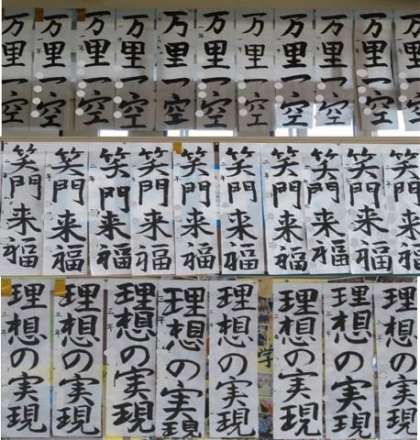 万里一空
万里一空
万里一空
万里一空
万里一空
万里一空
万里一空
万里一空
万里一空
万里一空
万里一空
笑門来福
笑門来福
笑門来福
笑門来福
笑門来福
笑門来福
笑門来福
笑門来福
笑門来福
笑門来福
理想の実現
理想の実現
理想の実現
理想の実現
理想の実現
理想の実現
理想の実現
理想の実現